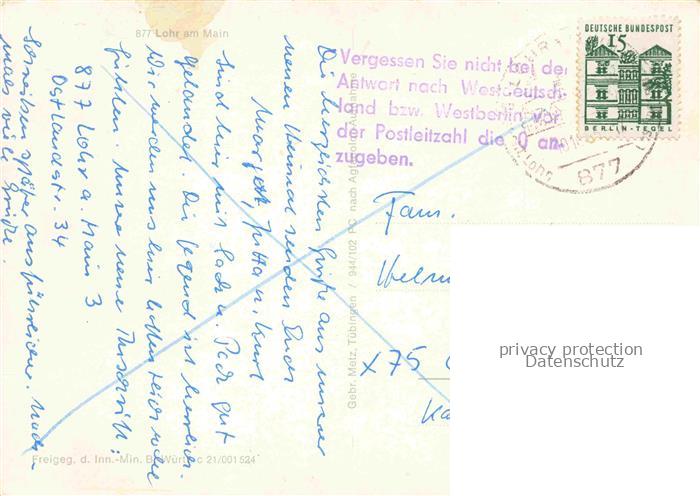 877 Lohr am Main
Die herzlichsten Grüße aus unserer
neuen Heimat senden Euch
Margot, Jutta u. Kurt
Sind hier mit Sack u. Pack gut
gelandet. Die Gegend ist herrlich.
Wir werden uns hier
fühlen. Unsere neue Anschrift:
877 Lohr a. Main 3
Ostlandstr. 34
Schreiben später ausführlicher. Noch-
mals viele Grüße.
Freigeg. d. Inn.-Min. B.-Württ.
21/001524
Gebr. Metz, Tübingen / 944/102 PC nach Agfacolor-Aufnahme
Vergessen Sie nicht bei der
Antwort nach Westdeutsch-
land bzw. Westberlin vor
der Postleitzahl die 0 an-
zugeben.
DEUTSCHE BUNDESPOST
15
BERLIN-TEGEL
877
Fam.
Helm
X75
privacy protection
Datenschutz